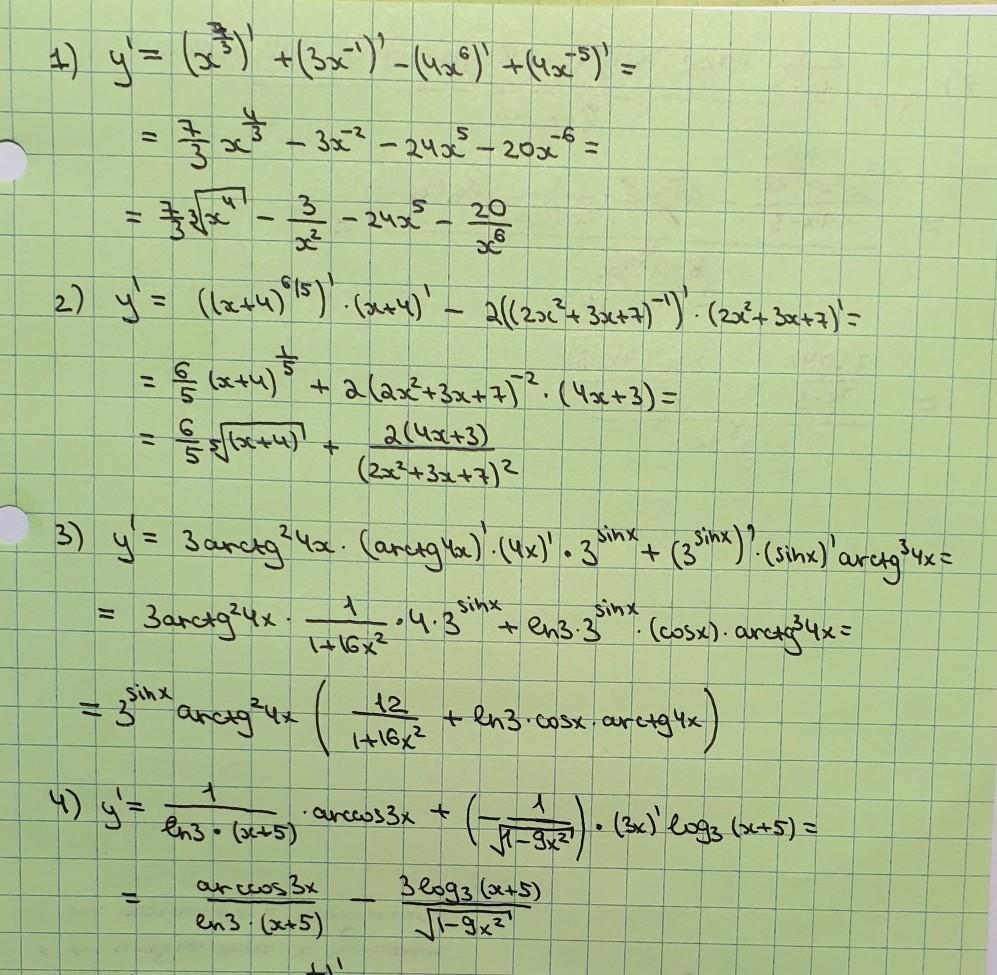 1) y' = (x^{7/3})' + (3x^{-1})' - (4x^6)' + (4x^{-5})' =
= 7/3 x^{4/3} - 3x^{-2} - 24x^5 - 20x^{-6} =
= 7/3 ∛(x^4) - 3/x^2 - 24x^5 - 20/x^6
2) y' = ((x+4)^{6/5})' · (x+4)' - 2((2x^2+3x+7)^{-1})' · (2x^2+3x+7)' =
= 6/5 (x+4)^{1/5} + 2(2x^2+3x+7)^{-2} · (4x+3) =
= 6/5 ⁵√(x+4) + 2(4x+3)/(2x^2+3x+7)^2
3) y' = 3arctg^2 4x · (arctg4x)' · (4x)' · 3^{sinx} + (3^{sinx})' · (sinx)' arctg^3 4x =
= 3arctg^2 4x · 1/(1+16x^2) · 4 · 3^{sinx} + ln3 · 3^{sinx} · (cosx) · arctg^3 4x =
= 3^{sinx} arctg^2 4x (12/(1+16x^2) + ln3 · cosx · arctg4x)
4) y' = 1/(ln3 · (x+5)) · arccos3x + (-1/√(1-9x^2)) · (3x)' log_3 (x+5) =
= arccos3x/(ln3 · (x+5)) - 3log_3 (x+5)/√(1-9x^2)